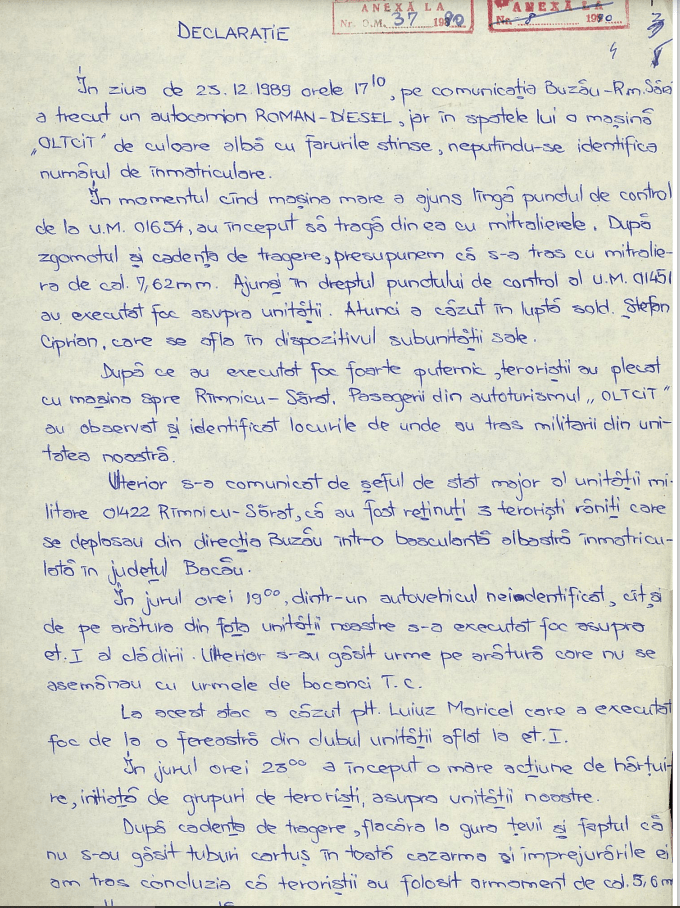 ANEXĂ LA
Nr. D.M. 37 1990
ANEXĂ LA
Nr. 8 1990
3
4
DECLARAȚIE
În ziua de 23.12.1989 orele 17¹⁰, pe comunicația Buzău-Rm.Săra
a trecut un autocamion ROMAN-DIESEL, iar în spatele lui o mașină
„OLTCIT" de culoare albă cu farurile stinse, neputîndu-se identifica
numărul de înmatriculare.
În momentul cînd mașina mare a ajuns lîngă punctul de control
de la U.M. 01654, au început să tragă din ea cu mitralierele. După
zgomotul și cadența de tragere, presupunem că s-a tras cu mitralie-
ra de cal. 7,62mm. Ajunși în dreptul punctului de control al U.M. 01451
au executat foc asupra unității. Atunci a căzut în luptă sold. Ștefan
Ciprian, care se afla în dispozitivul subunității sale.
După ce au executat foc foarte puternic, teroriștii au plecat
cu mașina spre Rîmnicu-Sărat. Pasagerii din autoturismul „OLTCIT"
au observat și identificat locurile de unde au tras militarii din uni-
tatea noastră.
Ulterior s-a comunicat de șeful de stat major al unității mi-
litare 01422 Rîmnicu-Sărat, că au fost reținuți 3 teroriști răniți care
se deplasau din direcția Buzău într-o basculantă albastră înmatricu-
lată în județul Bacău.
În jurul orei 19⁰⁰, dintr-un autovehicul neidentificat, cît și
de pe arătura din fața unității noastre s-a executat foc asupra
et. I al clădirii. Ulterior s-au găsit urme pe arătură care nu se
asemănau cu urmele de bocanci T.C.
La acest atac a căzut plt. Luiuz Maricel care a executat
foc de la o fereastră din clubul unității aflat la et. I.
În jurul orei 23⁰⁰ a început o mare acțiune de hărțui-
re, inițiată de grupuri de teroriști, asupra unității noastre.
După cadența de tragere, flacăra la gura țevii și faptul că
nu s-au găsit tuburi cartuș în toată cazarma și împrejurările ei
am tras concluzia că teroriștii au folosit armament de cal. 5,6 m